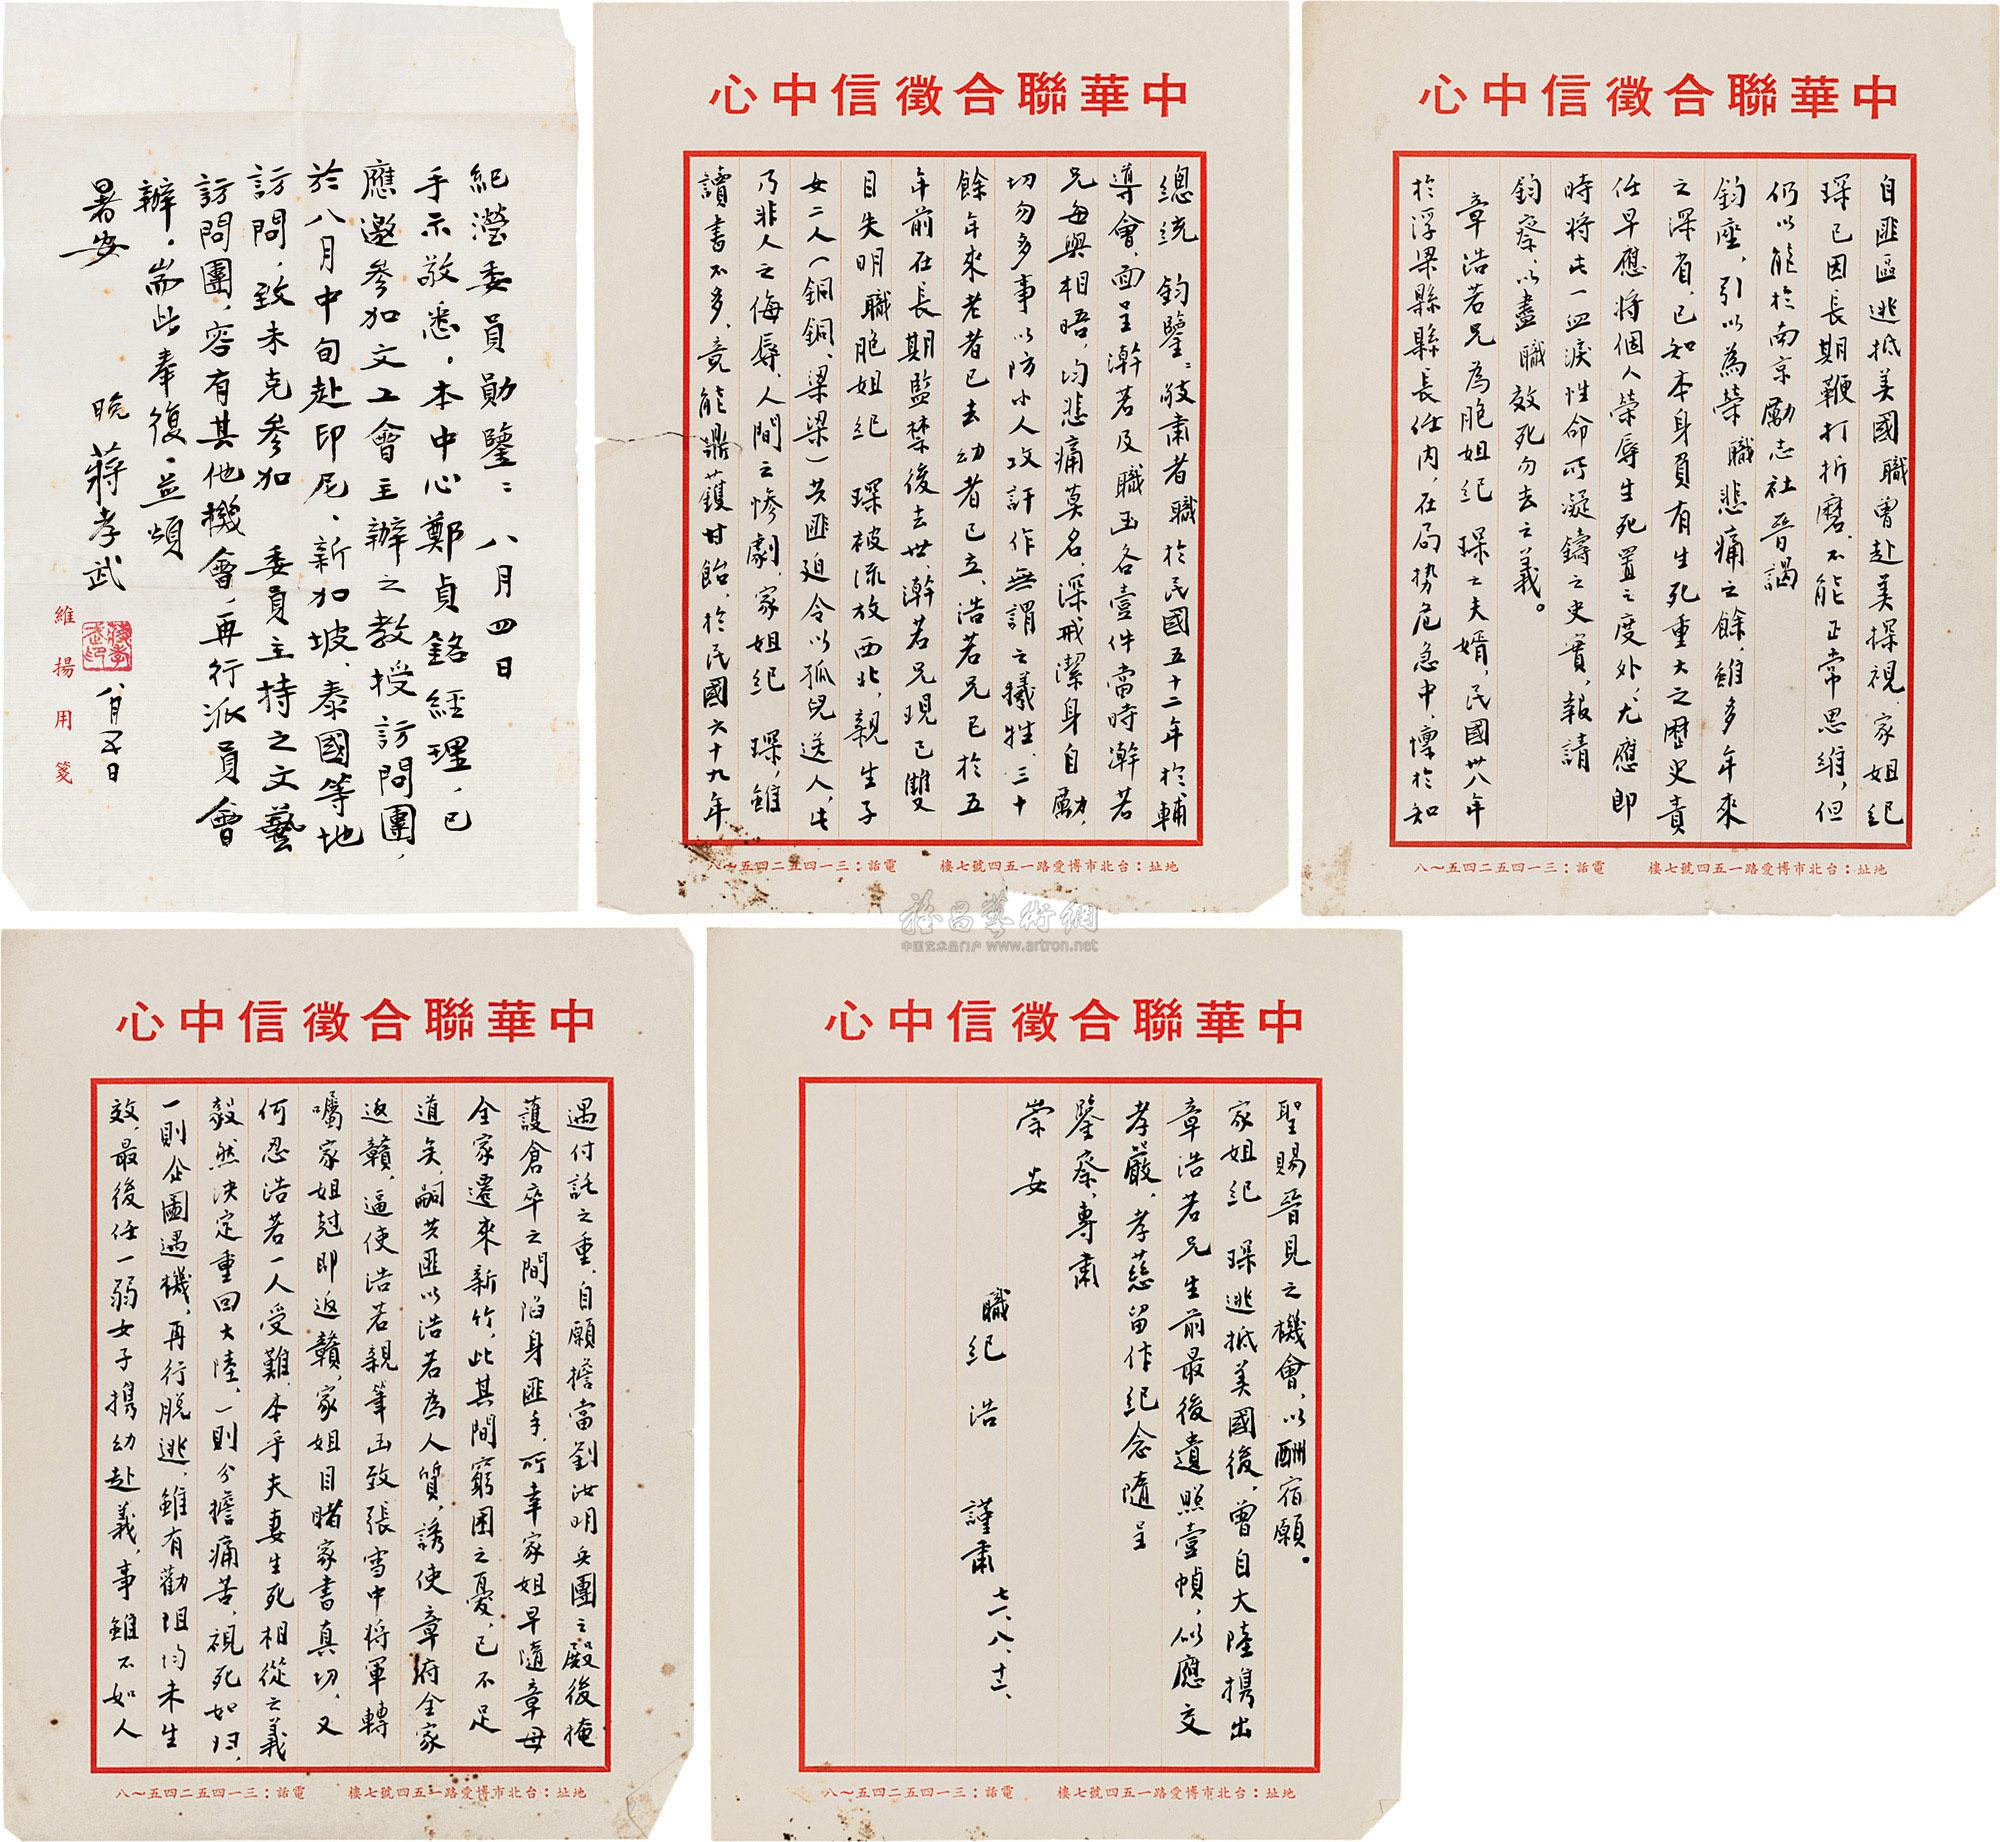 紀瀅委員勛鑒：八月四日
手示敬悉。本中心鄭貞銘經理，已
應邀參加文工會主辦之教授訪問團，
於八月中旬赴印尼、新加坡、泰國等地
訪問，致未克參加　委員主持之文藝
訪問團，容有其他機會，再行派員會
辦。耑此奉復，並頌
暑安
晚　蔣孝武　八月五日
維揚用箋
中華聯合徵信中心
總統　鈞鑒：敬肅者職於民國五十二年於輔
導會，面呈澣若及職函各壹件當時澣若
兄每與相晤，均悲痛莫名，深戒潔身自勵，
切勿多事以防小人攻訐作無謂之犧牲，三十
餘年來老者已去幼者已立、浩若兄已於五
年前在長期監禁後去世，澣若兄現已雙
目失明職胞姐紀　琛被流放西北，親生子
女二人（銅銅、梁梁）共匪迫令以孤兒送人，此
乃非人之侮辱，人間之慘劇，家姐紀　琛，雖
讀書不多，竟能鼎鑊甘飴，於民國六十九年
地址：台北市博愛路一五四號七樓　電話：三一四五二四五～八
中華聯合徵信中心
自匪區逃抵美國職曾赴美探視，家姐紀
琛已因長期鞭打折磨，不能正常思維，但
仍以能於南京勵志社晉謁
鈞座，引以為榮　職悲痛之餘，雖多年來
之深省，已知本身負有生死重大之歷史責
任早應將個人榮辱生死置之度外，尤應即
時將此一血淚性命所凝鑄之史實，報請
鈞察，以盡職效死勿去之義。
章浩若兄為胞姐紀　琛之夫婿，民國卅八年
於浮梁縣縣長任內，在局勢危急中，懍於知
地址：台北市博愛路一五四號七樓　電話：三一四五二四五～八
中華聯合徵信中心
遇付託之重，自願擔當劉汝明兵團之殿後掩
護倉卒之間陷身匪手，所幸家姐早隨章母
全家遷來新竹，此其間窮困之憂，已不足
道矣，嗣共匪以浩若為人質，誘使章府全家
返贛，逼使浩若親筆函致張雪中將軍轉
囑家姐尅即返贛，家姐目睹家書真切，又
何忍浩若一人受難，本乎夫妻生死相從之義
毅然決定重回大陸，一則分擔痛苦，視死如歸，
一則企圖遇機，再行脫逃，雖有勸阻均未生
效，最後任一弱女子攜幼赴義，事雖不如人
地址：台北市博愛路一五四號七樓　電話：三一四五二四五～八
中華聯合徵信中心
聖賜晉見之機會，以酬宿願。
家姐紀　琛逃抵美國後，曾自大陸攜出
章浩若兄生前最後遺照壹幀，似應交
孝嚴，孝慈留作紀念隨呈
鑒察，專肅
崇安
職紀　浩　謹肅　七一、八、十三、
地址：台北市博愛路一五四號七樓　電話：三一四五二四五～八
雅昌藝術網
中国艺术品门户 www.artron.net